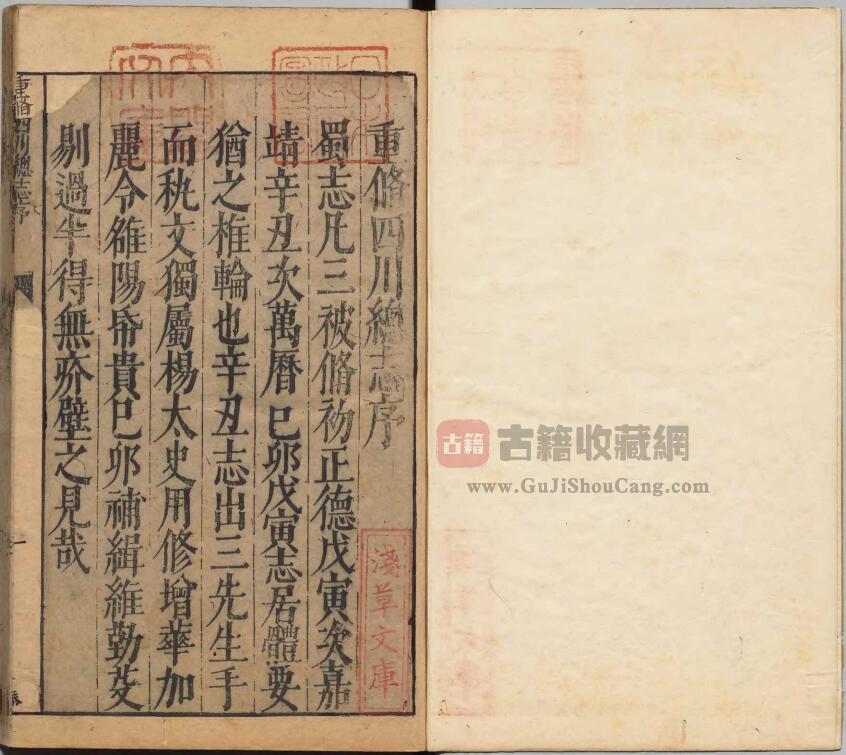 重脩四川總志序
蜀志凡三被脩初正德戊寅次嘉
靖辛丑次萬曆己卯戊寅志居體要
猶之椎輪也辛丑志出三先生手
而秇文獨屬楊太史用修增華加
麗令雒陽帋貴己卯補緝維勤芟
剔過半得無夰壁之見哉
重脩四川總志序
淺草文庫
古籍
古籍收藏網
www.GuJiShouCang.com